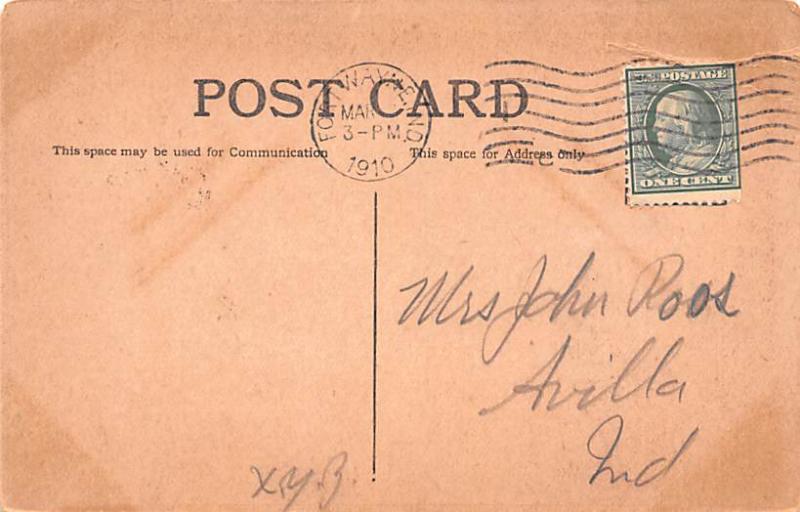 POST CARD
FORT WAYNE, IND
MAR
3-PM
1910
U.S. POSTAGE
ONE CENT
This space may be used for Communication
This space for Address only
Mrs John Roos
Avilla
Ind
x.y.z.